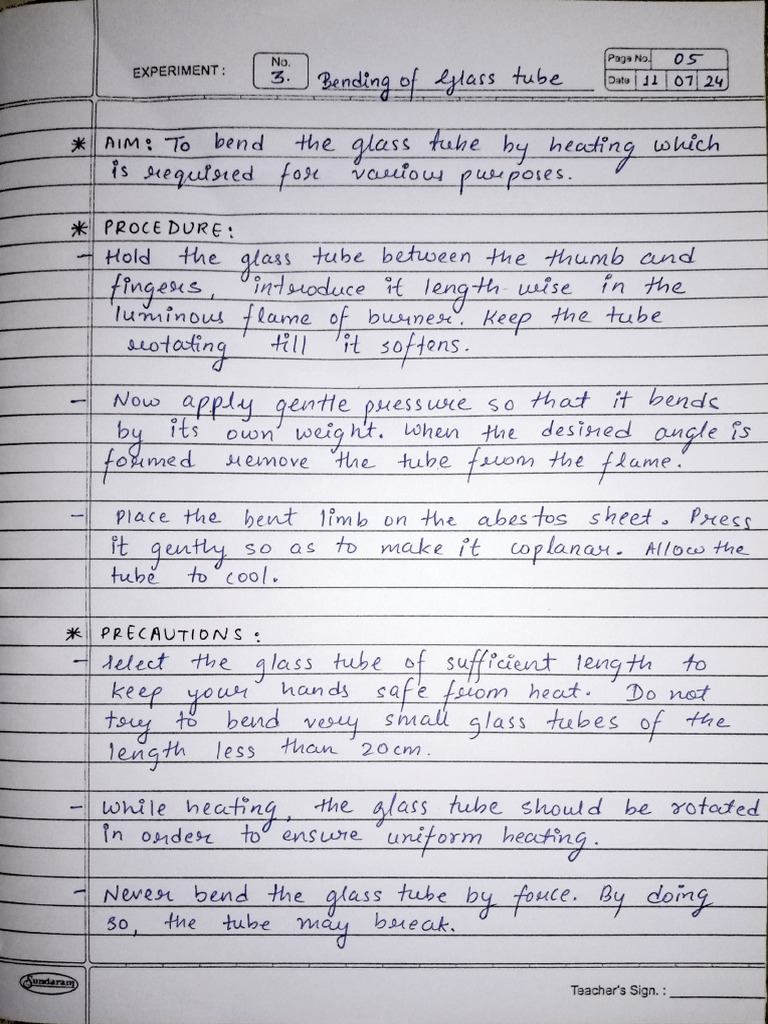 EXPERIMENT : No. 3. Bending of Glass tube Page No. 05
Date 11 07 24
* AIM: To bend the glass tube by heating which
is required for various purposes.
* PROCEDURE:
- Hold the glass tube between the thumb and
fingers, introduce it length-wise in the
luminous flame of burner. Keep the tube
rotating till it softens.
- Now apply gentle pressure so that it bends
by its own weight. When the desired angle is
formed remove the tube from the flame.
- Place the bent limb on the abestos sheet. Press
it gently so as to make it coplanar. Allow the
tube to cool.
* PRECAUTIONS:
- Select the glass tube of sufficient length to
keep your hands safe from heat. Do not
try to bend very small glass tubes of the
length less than 20cm.
- While heating, the glass tube should be rotated
in order to ensure uniform heating.
- Never bend the glass tube by force. By doing
so, the tube may break.
Sundaram
Teacher's Sign. :